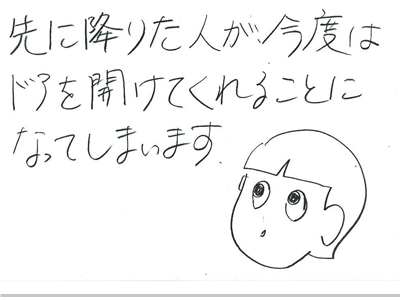 先に降りた人が、今度は
ドアを開けてくれることに
なってしまいます